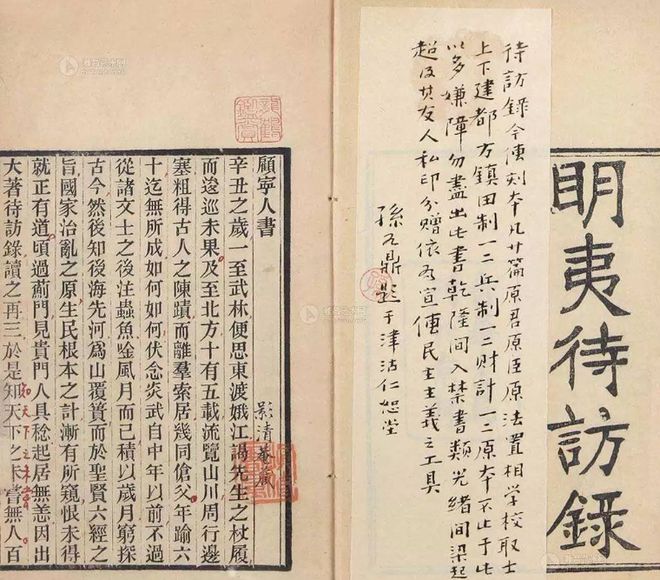 明夷待訪錄
待訪錄今傳刻本凡廿篇原君原臣原法置相學校取士
上下建都方鎮田制一二三兵制一二三財計一二三原本不止于此
以多嫌障勿盡出此書乾隆間入禁書類光緒間梁啟
超及其友人私印分贈依為宣傳民主主義之工具
孫 鼎題于津沽仁恕堂
顧寧人書
辛丑之歲一至武林便思東渡娥江謁先生之杖履
而逡巡未果及至北方十有五載流覽山川周行邊
塞粗得古人之陳蹟而離羣索居幾同傖父年踰六
十迄無所成如何如何伏念炎武自中年以前不過
從諸文士之後注蟲魚唫風月而己積以歲月窮探
古今然後知後海先河為山覆簣而於聖賢六經之
旨國家治亂之原生民根本之計漸有所窺恨未得
就正有道頃過薊門見貴門人具稔起居無恙因出
大著待訪錄讀之再三於是知天下之未嘗無人百
知天下之未嘗